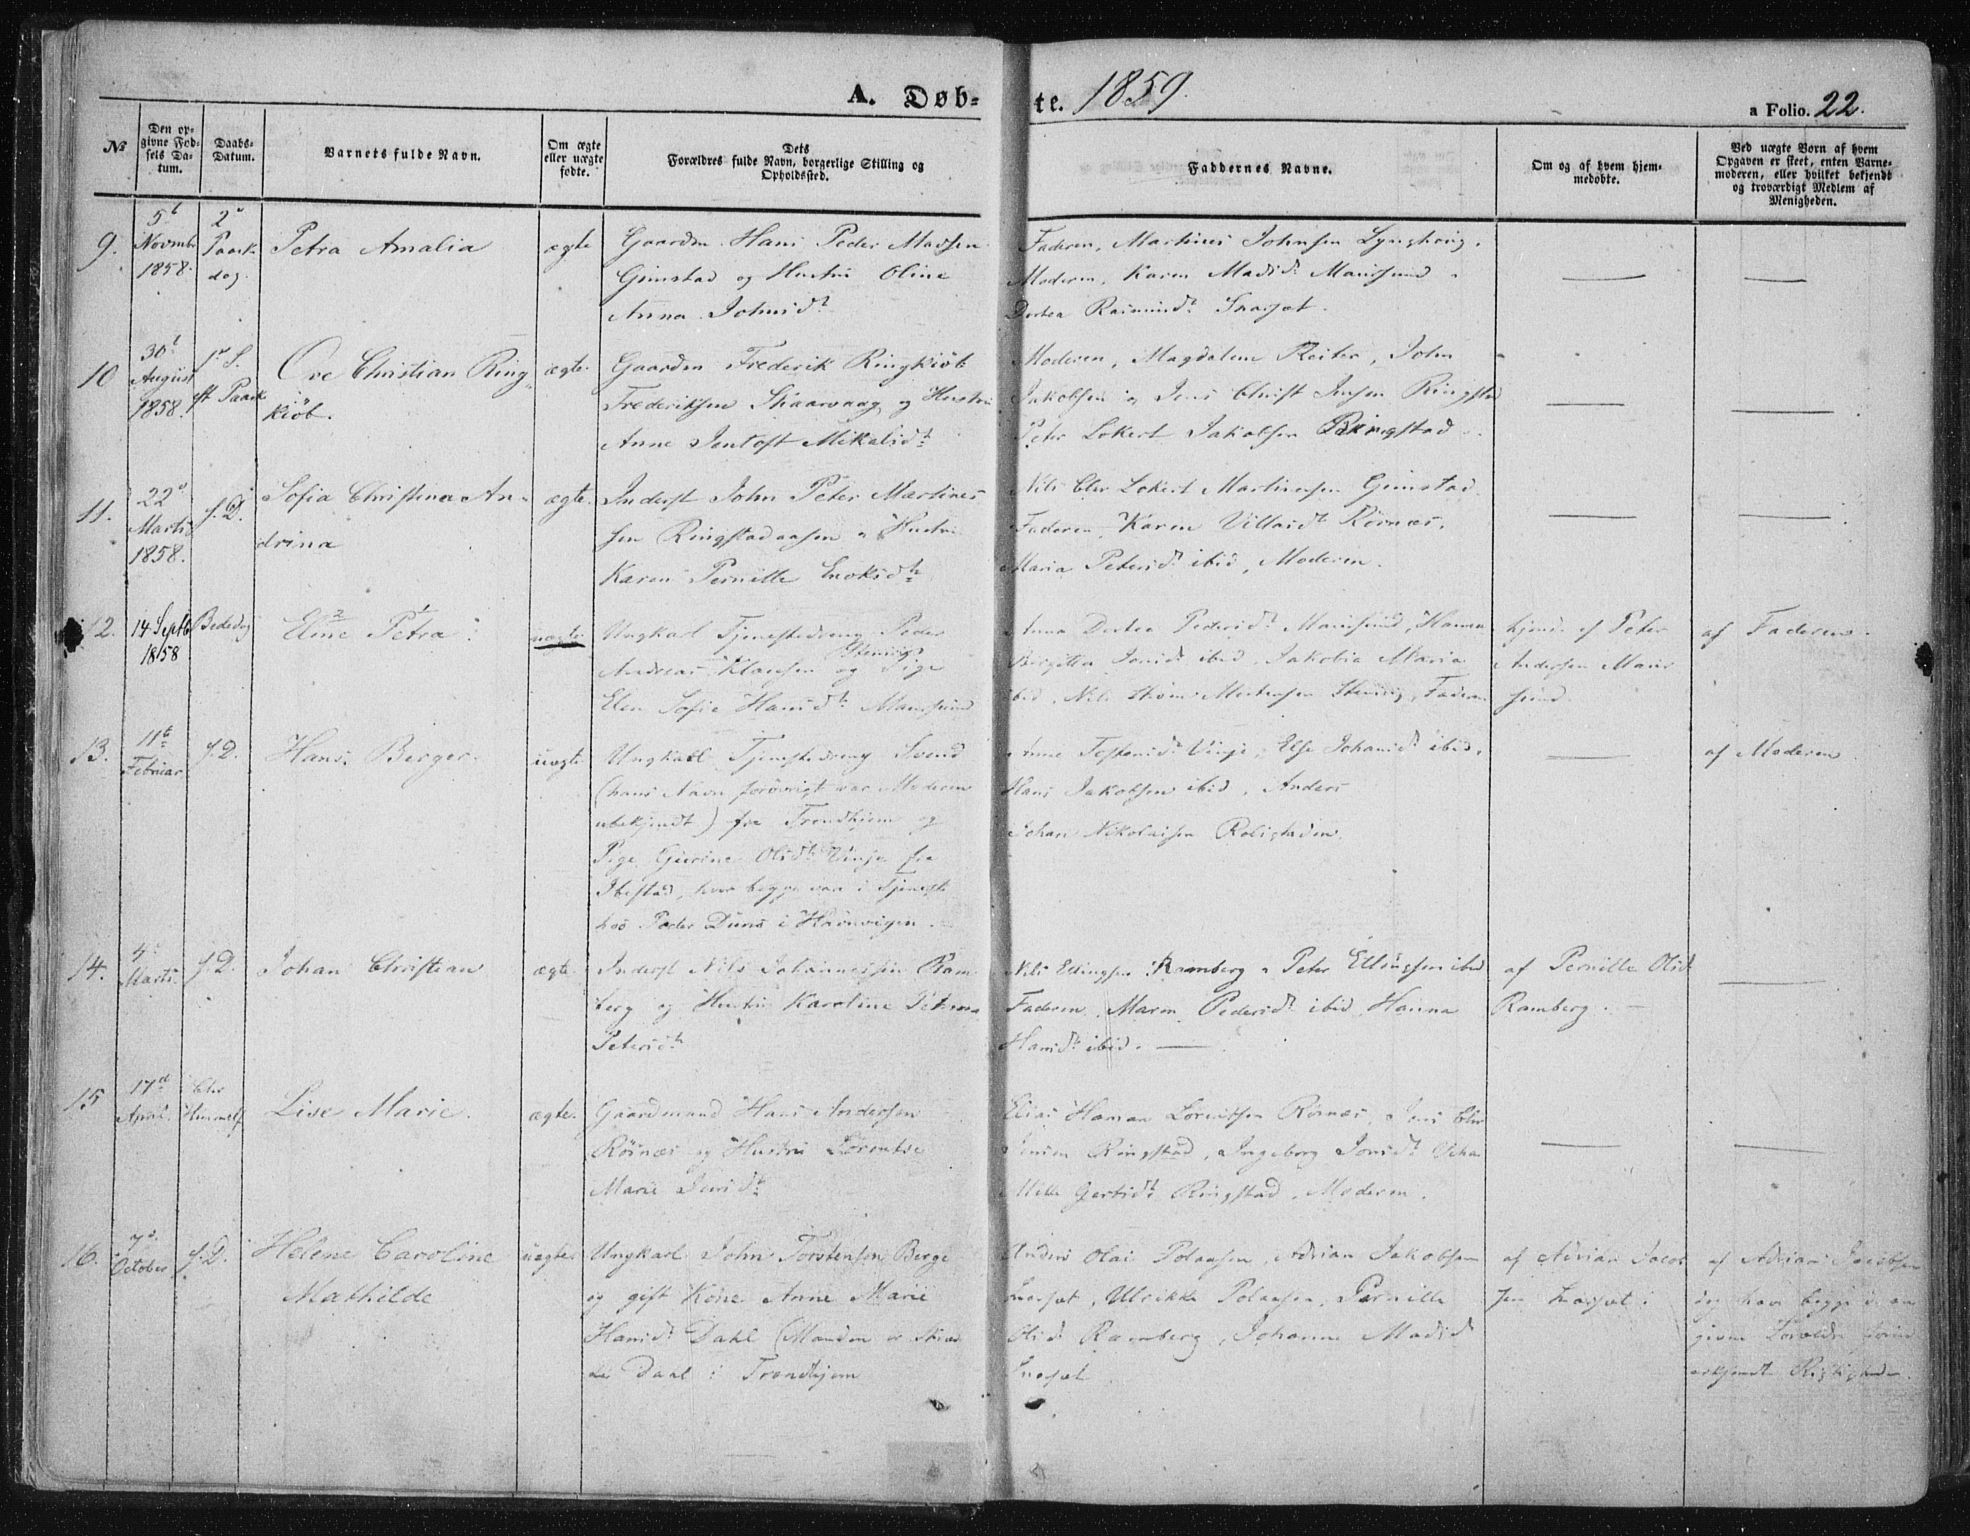 A. Døb=te. 1859.
a Folio. 22.
№
Den op-
givne Fød-
sels Da-
tum.
Daabs-
Datum.
Barnets fulde Navn.
Om ægte
eller uægte
fødte.
Dets
Forældres fulde Navn, borgerlige Stilling og
Opholdssted.
Faddernes Navne.
Om og af hvem hjem-
medøbte.
Ved uægte Børn af hvem
Opgaven er skeet, enten Barne-
moderen, eller hvilket bekjendt
og troværdigt Medlem af
Menigheden.
9.
5t
Novmbr
1858.
2n
Paask
dag.
Petra Amalia
ægte
Gaardm. Hans Peder Madsen
Grimstad og Hustru Oline
Anna Johnsdt
Faderen, Martines Johnsen
Moderen, Karen Madsdt
Dortea
10
30t
August
1858.
1n S.
eft Paask
Ove Christian Ring
kiöb.
ægte.
Gaardm Frederik Ringkiöb
Frederiksen Skaarvaag og Hustru
Anne Jentoft Mikalsdt
Moderen, Magdalena Reiter, John
Jakobsen og Jens Christ Jensen Ringstad
Peter Lokert Jakobsen Ringstad
11.
22n
Marts
1858.
s. D.
Sofia Christina An-
drina
ægte.
Inderst John Peter Martines
sen Ringstadaasen og Hustru
Karen Pernille Enoksdt
Nils Chr Lokert Martinsen Grimstad
Faderen, Karen Villasdt Rörnæs,
Maria Petersdt ibid, Moderen.
12.
14 Septb
1858
Bededag
2 1
Eline Petra
uægte
Ungkarl Tjenestedreng Peder
Andreas Klausen og Pige
Elen Sofie Hansdt
Anna Dortea Pedersdt
Birgitta Jonsdt ibid, Jakobia Maria
ibid, Nils Mortensen Faderen
hjemd. af Peter
Andersen
af Faderen.
13.
11t
Februar
s. D.
Hans Berger.
uægte
Ungkarl Tjenestedreng Svend
(hans Navn forövrigt var Moderen
ubekjendt) fra Trondhjem og
Pige Gjerine Olsdt Vinje fra
Ibestad, hvor begge var i Tjeneste
hos Peder Duns i Havnvigen.
Anne Tostensdt Vinje, Else Johansdt ibid.
Hans Jakobsen ibid, Anders
Johan Nikolaisen Roligheden.
af Moderen
14.
4n
Marts.
s. D.
Johan Christian
ægte.
Inderst Nils Johannessen Ram
berg og Hustru Karoline Petrina
Petersdt
Nils Ellingsen Ramberg, Peter Ellingsen ibid
Faderen, Maren Pedersdt ibid, Hanna
Hansdt ibid.
af Pernille Olsdt
Ramberg.
15
17d
April.
Chr
Himmelf
Lise Marie.
ægte.
Gaardmand Hans Andersen
Rörnæs og Hustru Lorentse
Marie Jensdt
Elias Haman Lorentsen Rörnæs, Jens Chr
Jensen Ringstad, Ingeborg Jonsdt
Mille Gertsdt Ringstad, Moderen.
16.
7n
October
s. D.
Helene Caroline
Mathilde
uægte
Ungkarl John Torstensen Berge
og gift Kone Anne Marie
Hansdt Dahl (Manden er
Dahl i Trondhjem
Anders Olai Polausen, Adrian Jakobsen
Ulrikke Polausen, Pernille
Olsdt Ramberg, Johanne Madsdt
af Adrian Jacob
sen
af Adrian Jacobsen
og have begge de an
givne Forældre
erkjendt Rigtigheden.